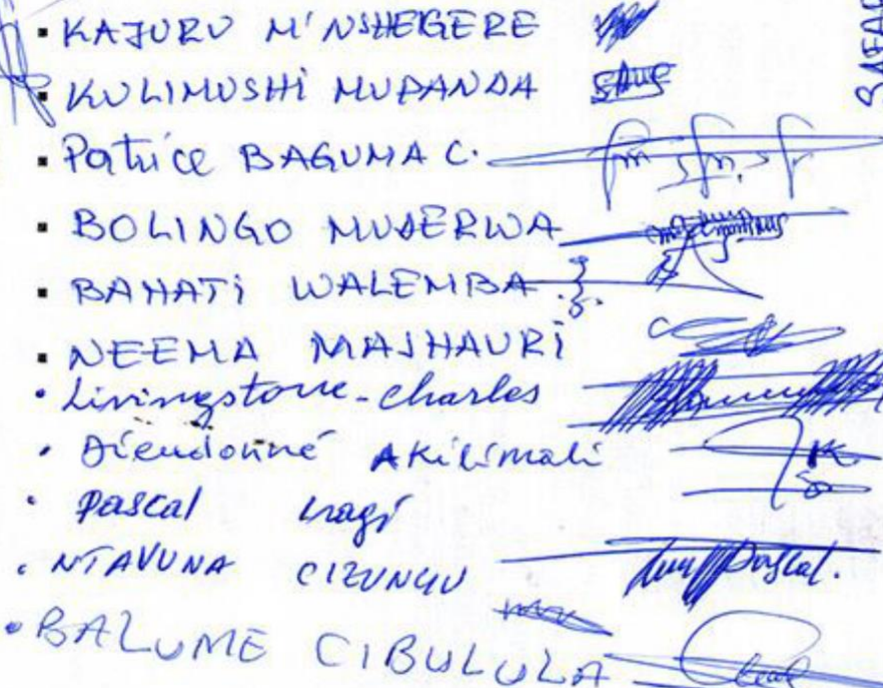 KAJURU M'NSHEGERE
KULIMUSHI MUPANDA
Patrice BAGUMA C.
BOLINGO MUDERWA
BAHATI WALEMBA
NEEMA MASHAURI
Livingstone-Charles
Dieudonné AKilimali
Pascal
NTAVUNA CIZUNGU
Pascal.
BALUME CIBULULA